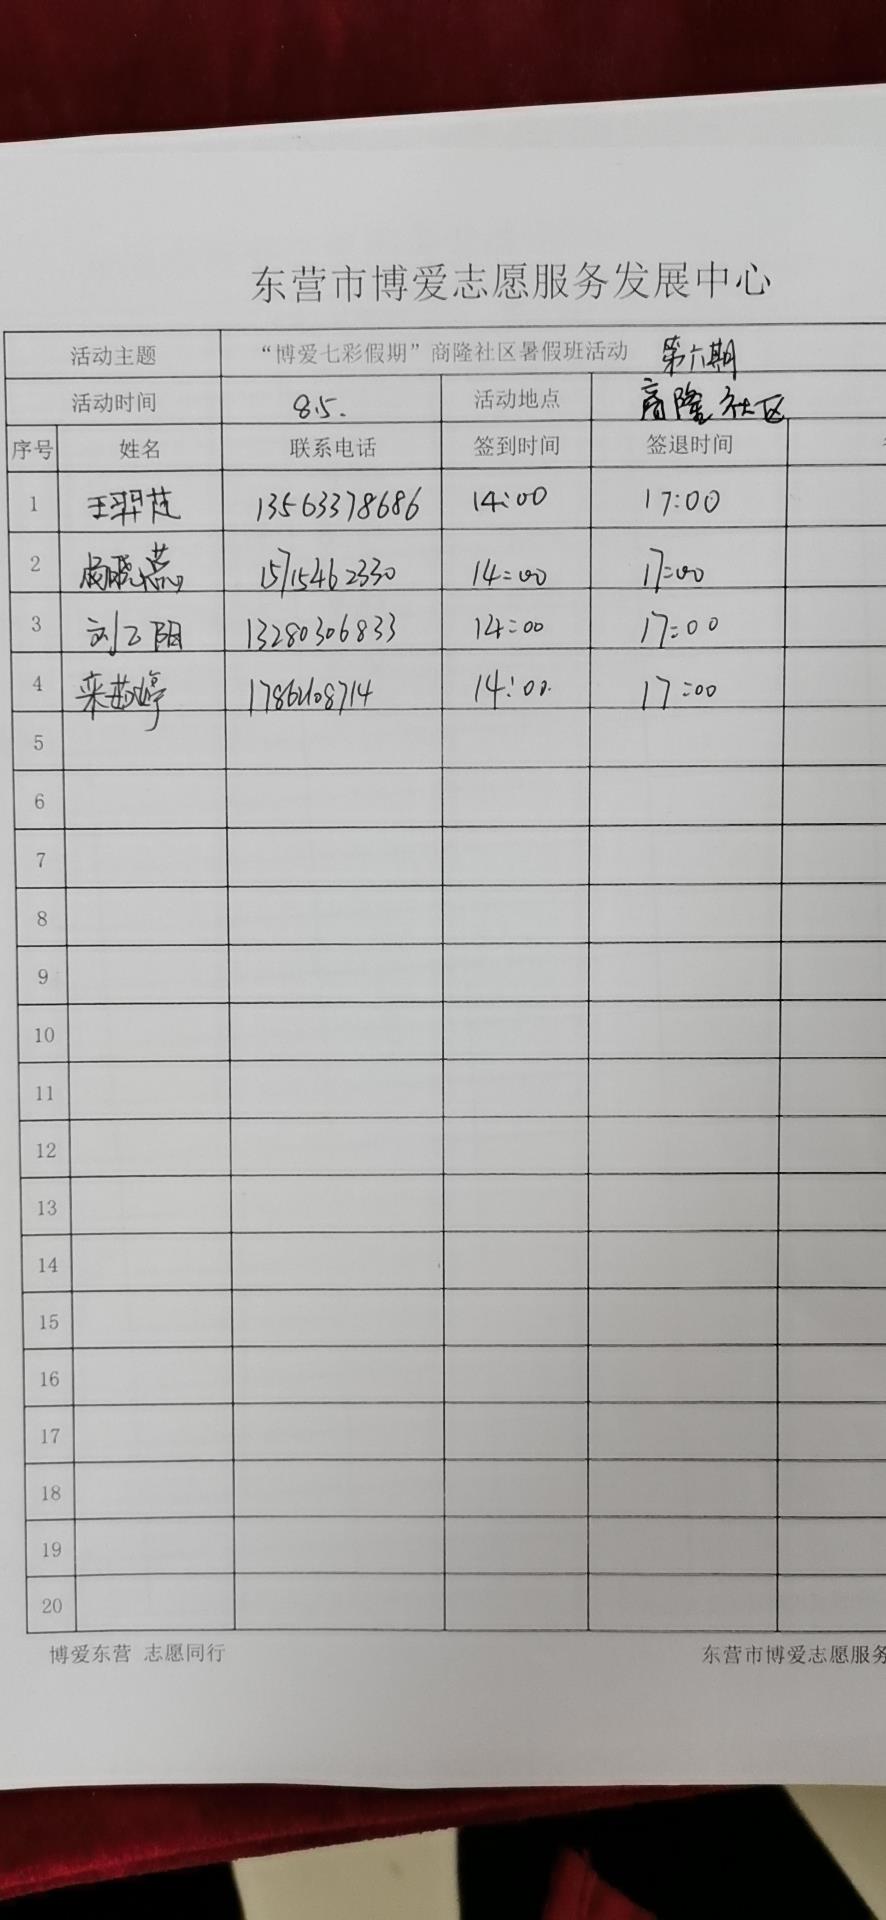 东营市博爱志愿服务发展中心
活动主题 “博爱七彩假期”商隆社区暑假班活动 第六期
活动时间 8.5. 活动地点 商隆社区
序号 姓名 联系电话 签到时间 签退时间
1 王羿芝 13563378686 14:00 17:00
2 晓燕 15715462330 14:00 17:00
3 刘乙阳 13280306833 14:00 17:00
4 栾茹婷 17862108714 14:00 17:00
5
6
7
8
9
10
11
12
13
14
15
16
17
18
19
20
博爱东营 志愿同行 东营市博爱志愿服务